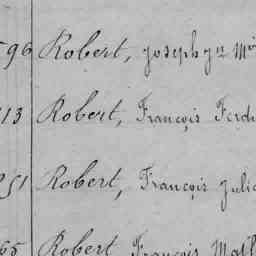 96 Robert, Joseph
13 Robert, François Ferd
251 Robert, François Juli
65 Robert François Math